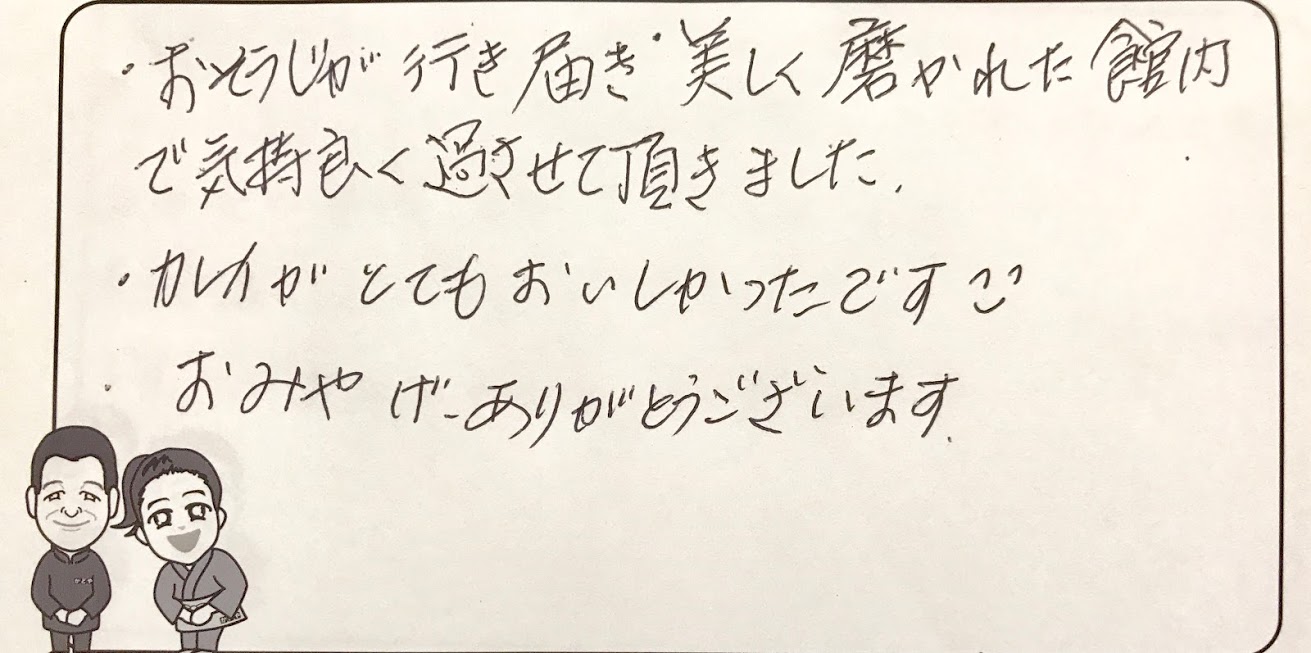 ・おそうじが行き届き美しく磨かれた館内
で気持良く過させて頂きました.
・カレイがとてもおいしかったです
おみやげーありがとうございます.